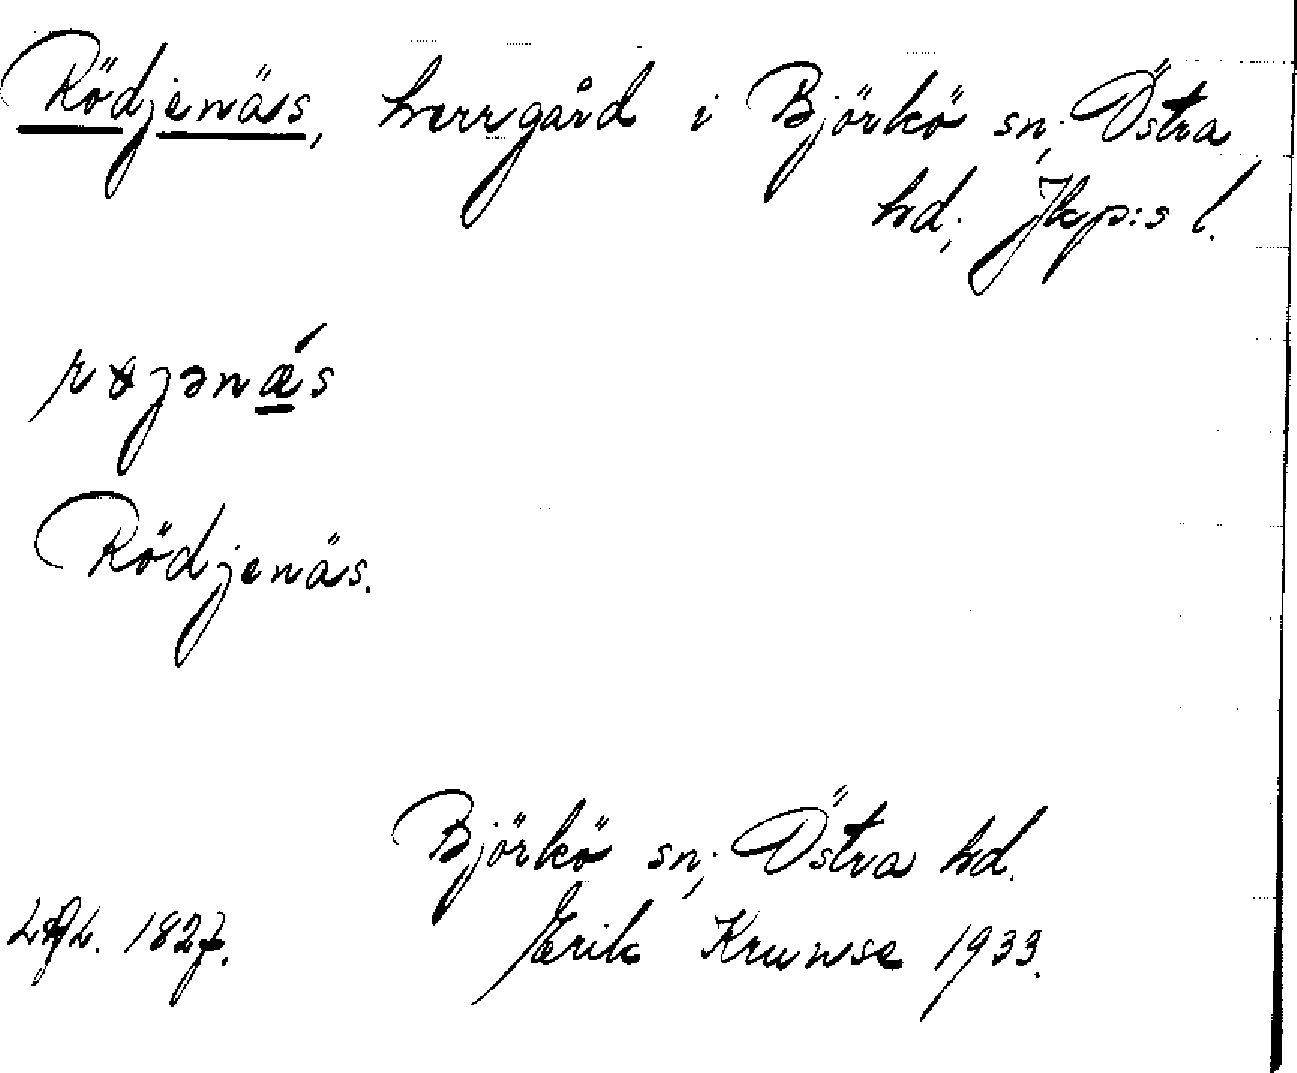 Rödjenäs, herrgård i Björkö sn; Östra
hd; Jkp:s l.
røjənǽs
Rödjenäs.
Björkö sn; Östra hd.
1827. Erik Kruuse 1933.